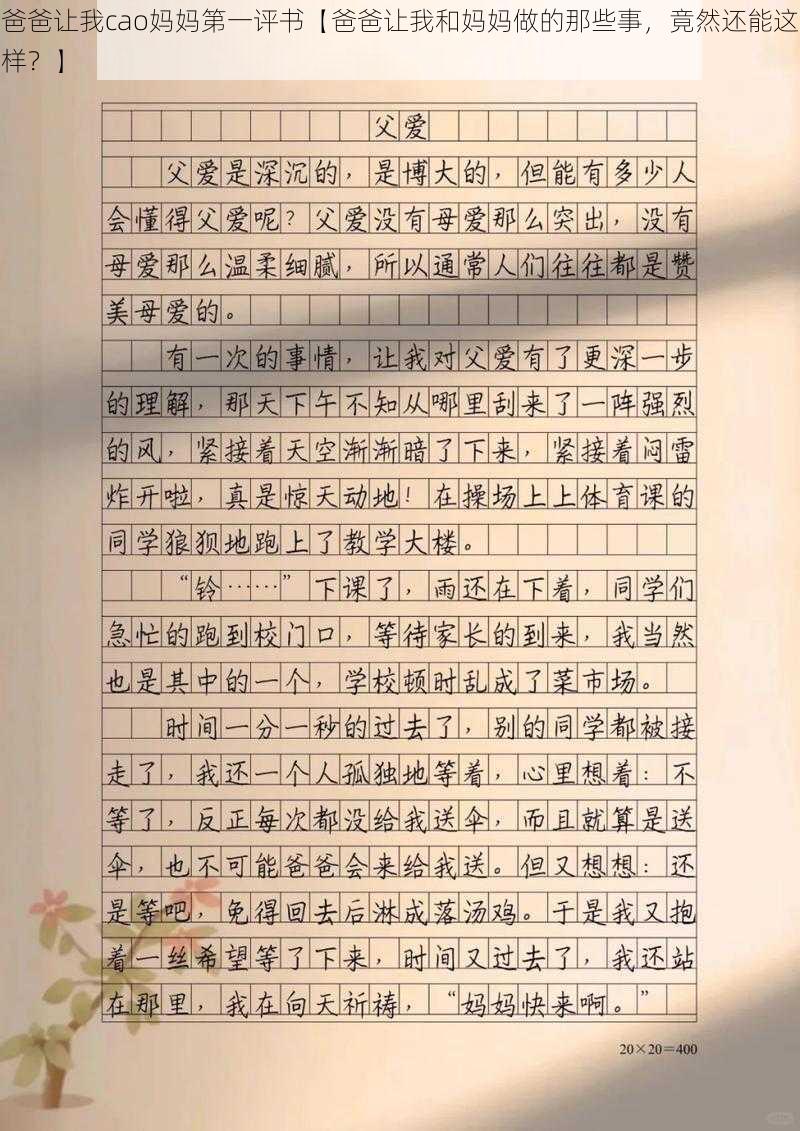 爸爸让我cao妈妈第一评书【爸爸让我和妈妈做的那些事，竟然还能这
样？】
父爱
父爱是深沉的，是博大的，但能有多少人
会懂得父爱呢？父爱没有母爱那么突出，没有
母爱那么温柔细腻，所以通常人们往往都是赞
美母爱的。
有一次的事情，让我对父爱有了更深一步
的理解，那天下午不知从哪里刮来了一阵强烈
的风，紧接着天空渐渐暗了下来，紧接着闷雷
炸开啦，真是惊天动地！在操场上上体育课的
同学狼狈地跑上了教学大楼。
“铃……”下课了，雨还在下着，同学们
急忙的跑到校门口，等待家长的到来，我当然
也是其中的一个，学校顿时乱成了菜市场。
时间一分一秒的过去了，别的同学都被接
走了，我还一个人孤独地等着，心里想着：不
等了，反正每次都没给我送伞，而且就算是送
伞，也不可能爸爸会来给我送。但又想想：还
是等吧，免得回去后淋成落汤鸡。于是我又抱
着一丝希望等了下来，时间又过去了，我还站
在那里，我在向天祈祷，“妈妈快来啊。”
20×20=400